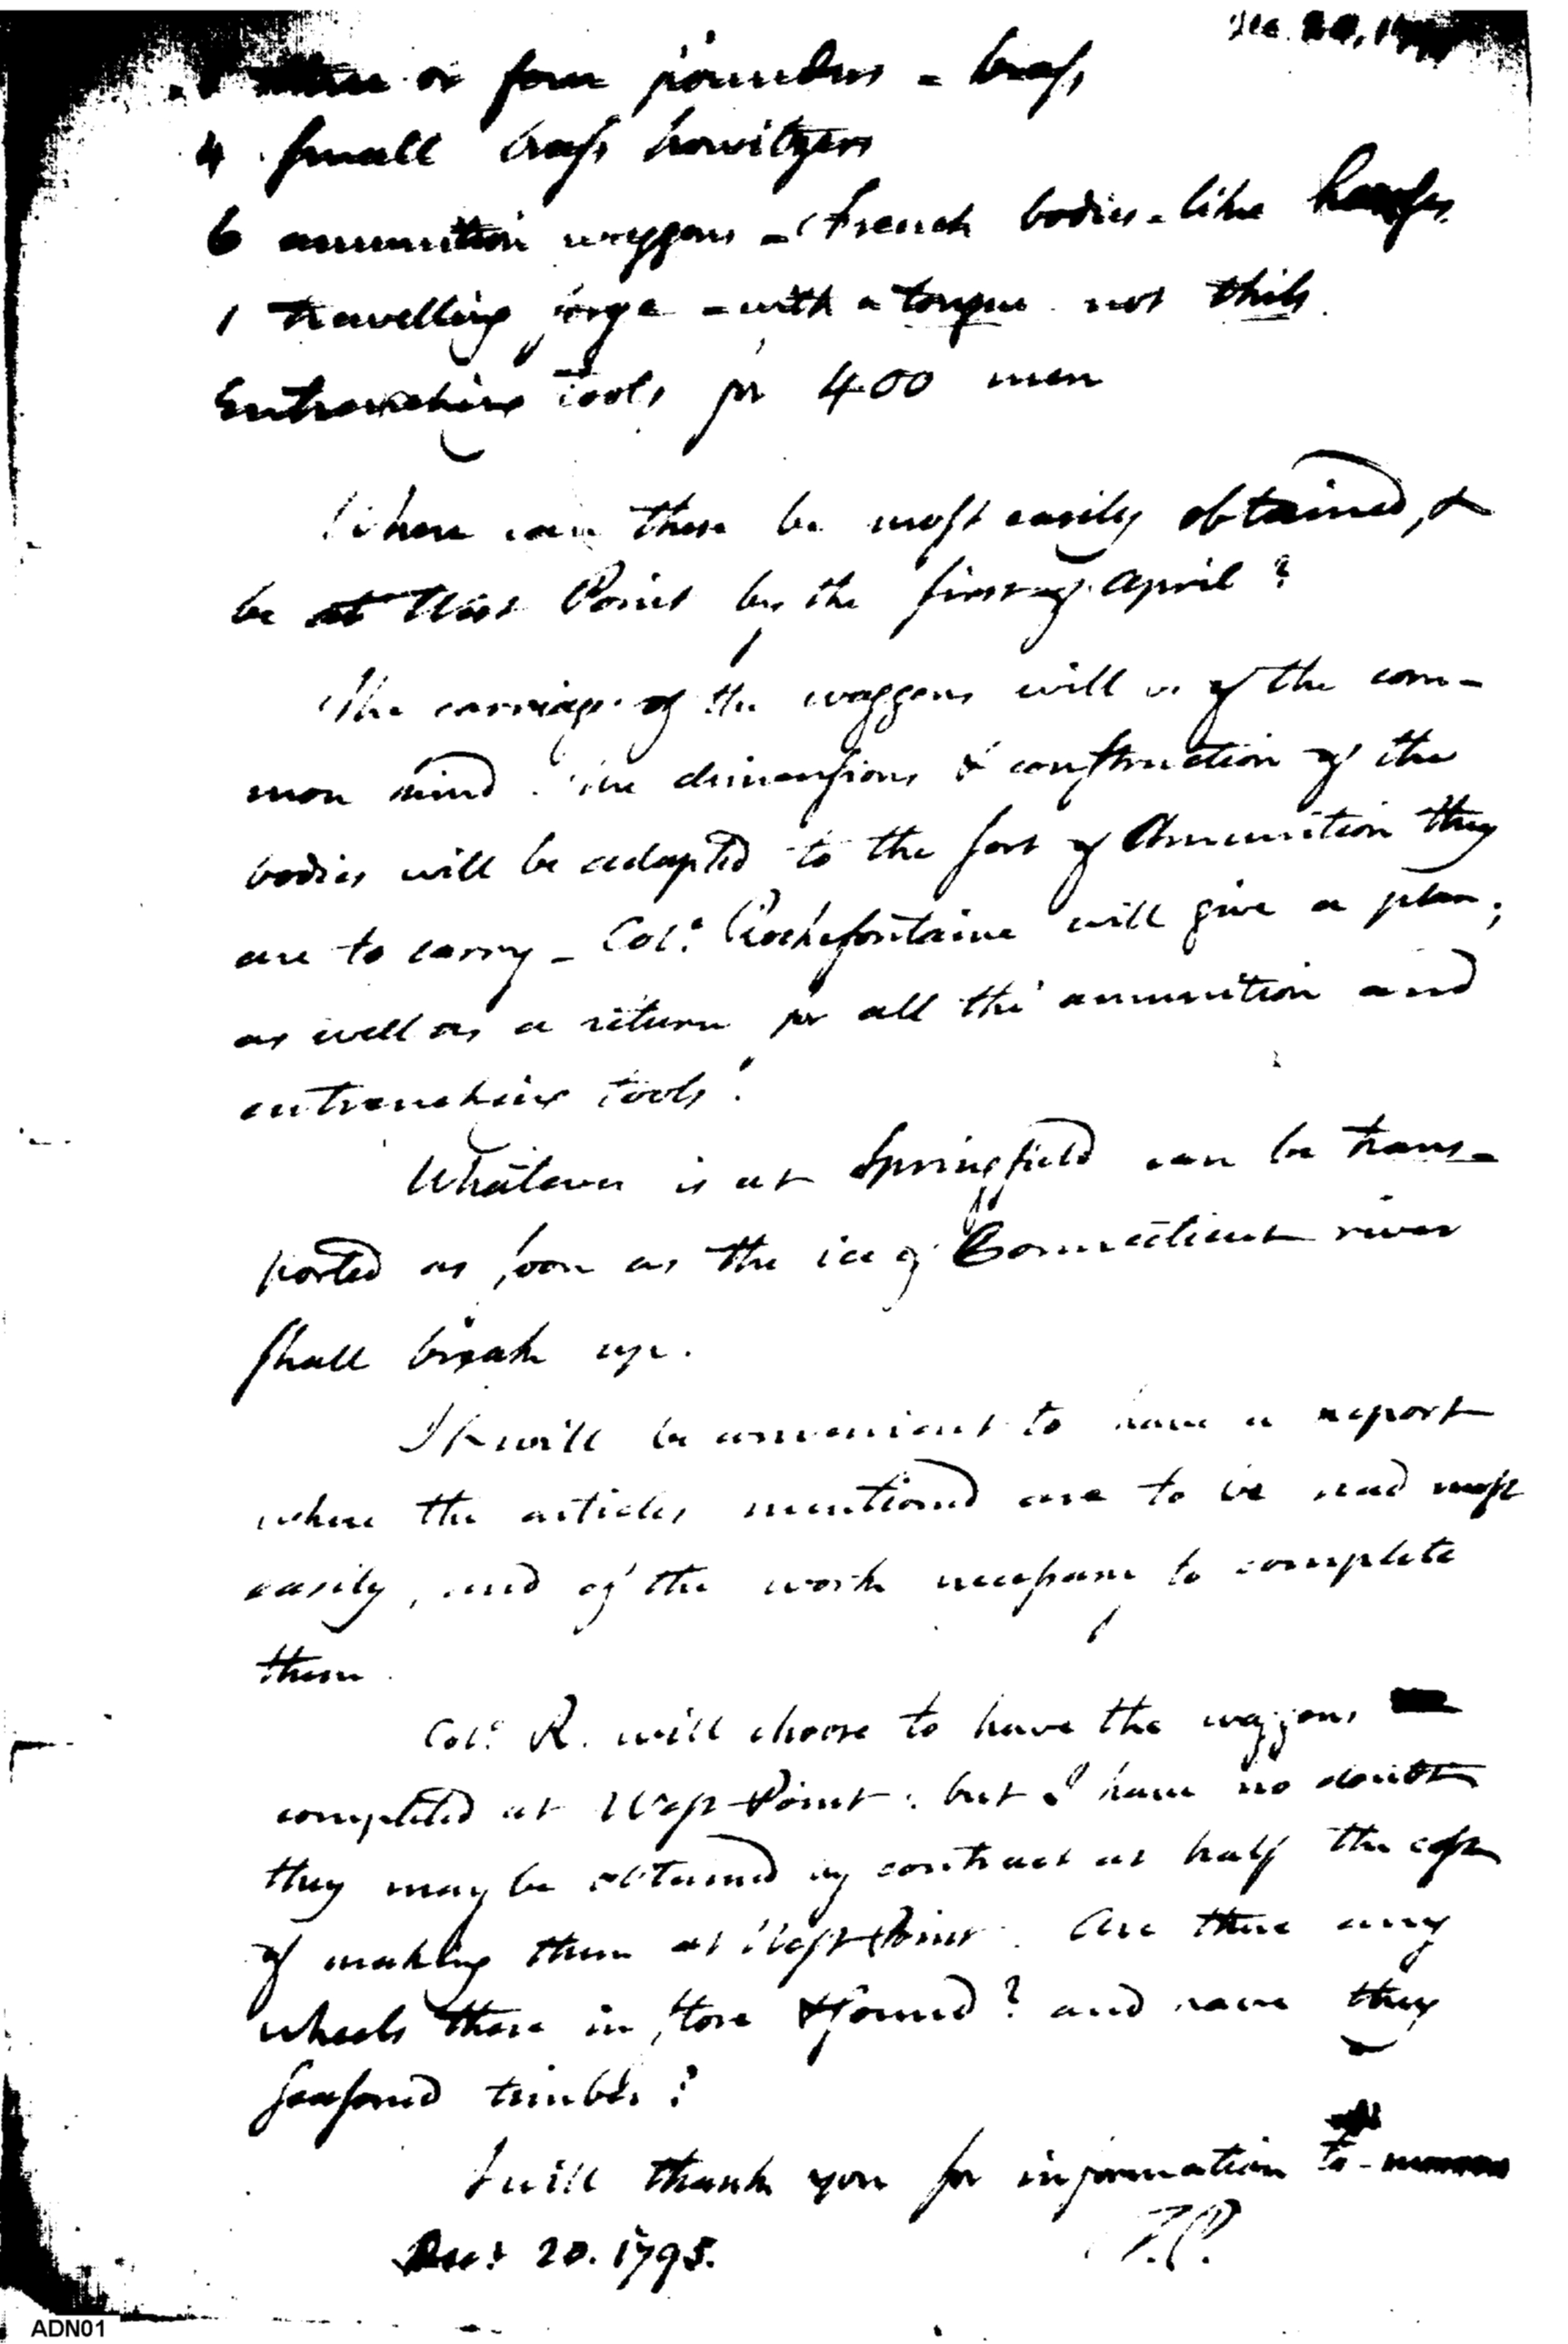 Dec. 20, 17
three or four pounders - brass
4 small brass howitzers
6 ammunition waggons - French bodies - like
1 travelling forge - with a tongue not thils.
Entrenching tools for 400 men
Where can these be most easily obtained, &
be at West Point by the first of April?
The carriage of the waggons will be of the com-
mon kind. The dimensions & construction of the
bodies will be adapted to the sort of Ammunition they
are to carry - Colo. Rochefontaine will give a plan;
as well as a return for all the ammunition and
entrenching tools.
Whatever is at Springfield can be trans-
ported as soon as the ice of Connecticut river
shall break up.
It will be convenient to have a report
where the articles mentioned are to be had most
easily, and of the work necessary to complete
them.
Colo. R. will choose to have the waggons
completed at West-Point: but I have no doubt
they may be obtained by contract at half the cost
of making them at West-Point. Are there any
wheels there in store & sound? and have they
seasoned timber?
I will thank you for information to
Decr. 20. 1795. T.P.
ADN01